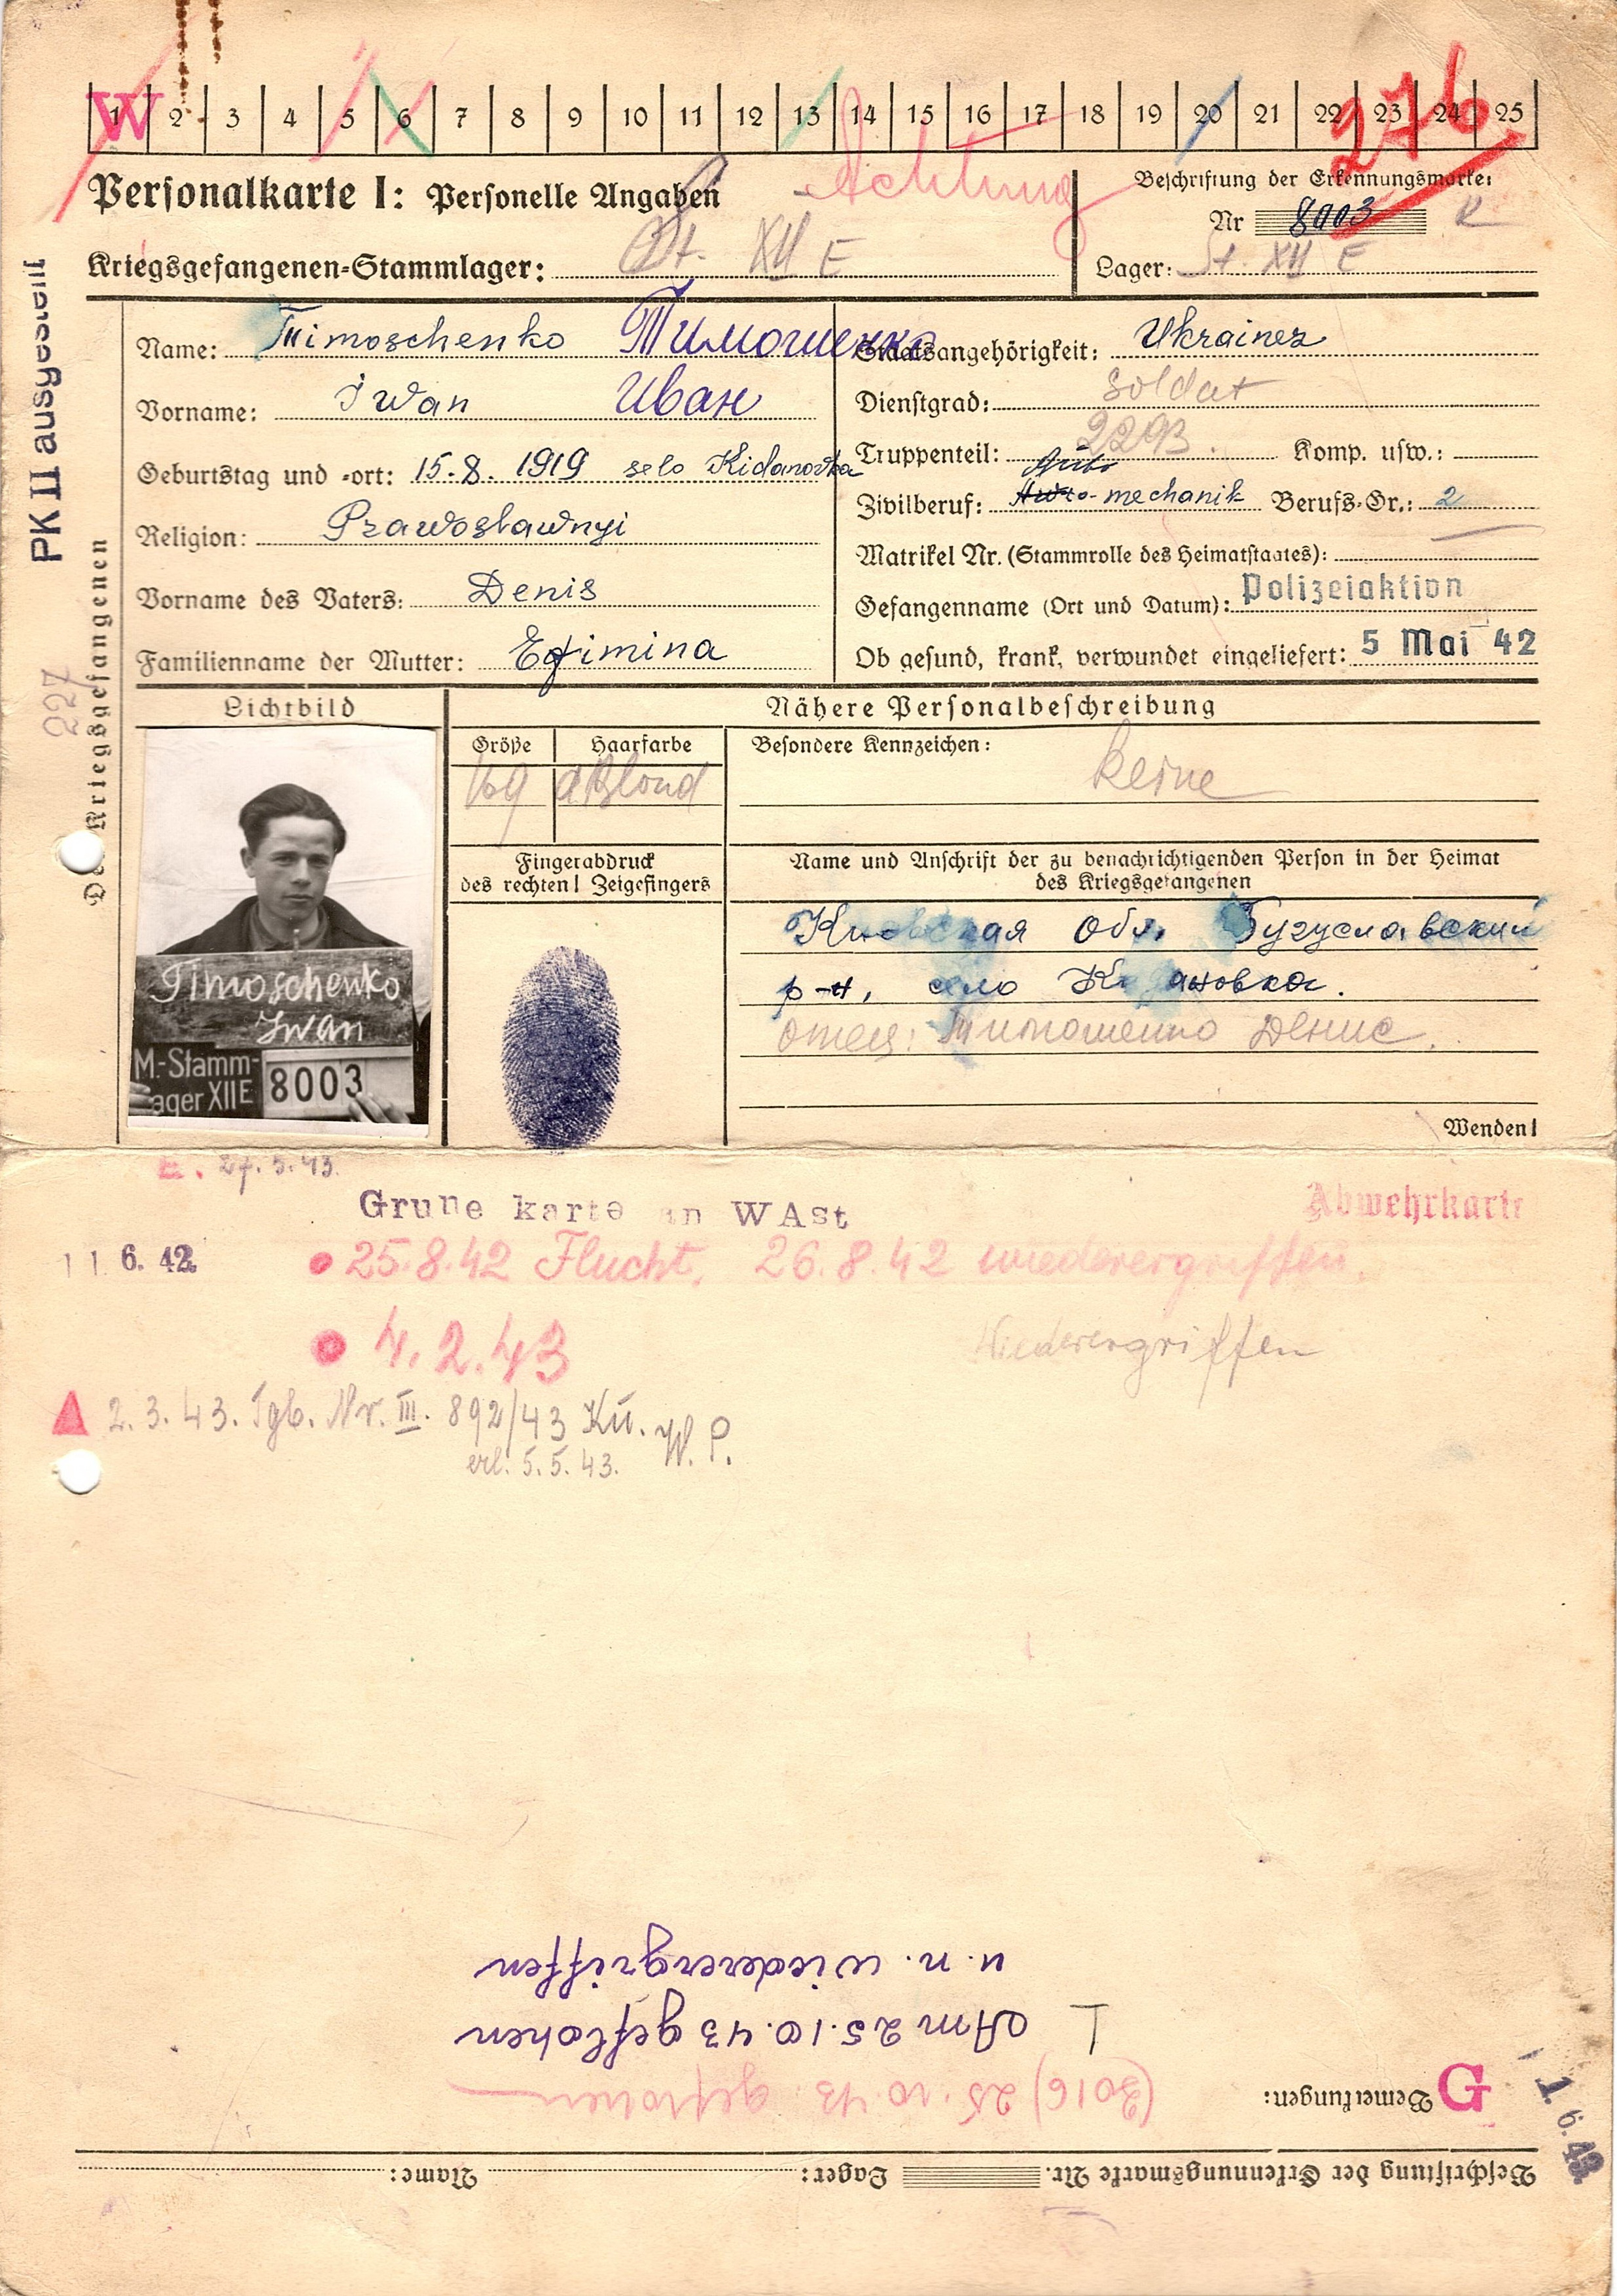 W
1 2 3 4 5 6 7 8 9 10 11 12 13 14 15 16 17 18 19 20 21 22 23 24 25
276
Achtung
Personalkarte I: Personelle Angaben
Beschriftung der Erkennungsmarke:
Nr 8003
Kriegsgefangenen-Stammlager: St. XII E
Lager: St. XII E
PK II ausgestellt
227
Des Kriegsgefangenen
Name: Timoschenko Тимошенко
Vorname: Iwan Иван
Geburtstag und -ort: 15.8.1919 selo Kidanovka
Religion: Prawoslawnyi
Vorname des Vaters: Denis
Familienname der Mutter: Efimina
Staatsangehörigkeit: Ukrainer
Dienstgrad: Soldat
Truppenteil: 2293. Komp. usw.:
Zivilberuf: Auto-mechanik Berufs-Gr.: 2
Matrikel Nr. (Stammrolle des Heimatstaates):
Gefangennahme (Ort und Datum): Polizeiaktion
Ob gesund, krank, verwundet eingeliefert: 5 Mai 42
Lichtbild
Timoschenko
Iwan
M.-Stamm-
lager XII E 8003
Nähere Personalbeschreibung
Größe Haarfarbe
169 dblond
Besondere Kennzeichen: keine
Fingerabdruck
des rechten! Zeigefingers
Name und Anschrift der zu benachrichtigenden Person in der Heimat
des Kriegsgefangenen
Киевская Обл. Бугуславский
р-н, село Кидановка.
отец: Тимошенко Денис.
Wenden!
27.5.43.
Grune karte an WASt
Abwehrkarte
11 6. 42
25.8.42 Flucht, 26.8.42 wiederergriffen.
4.2.43 Wiederergriffen
2.3.43. Tgb. Nr. III. 892/43 Kü. W.P.
erl. 5.5.43.
u. n. wiederergriffen
Am 25.10.43 geflohen
(3016) 25.10.43 geflohen
Bemerkungen:
G
1 6. 43
Beschriftung der Erkennungsmarke Nr. Lager: Name: